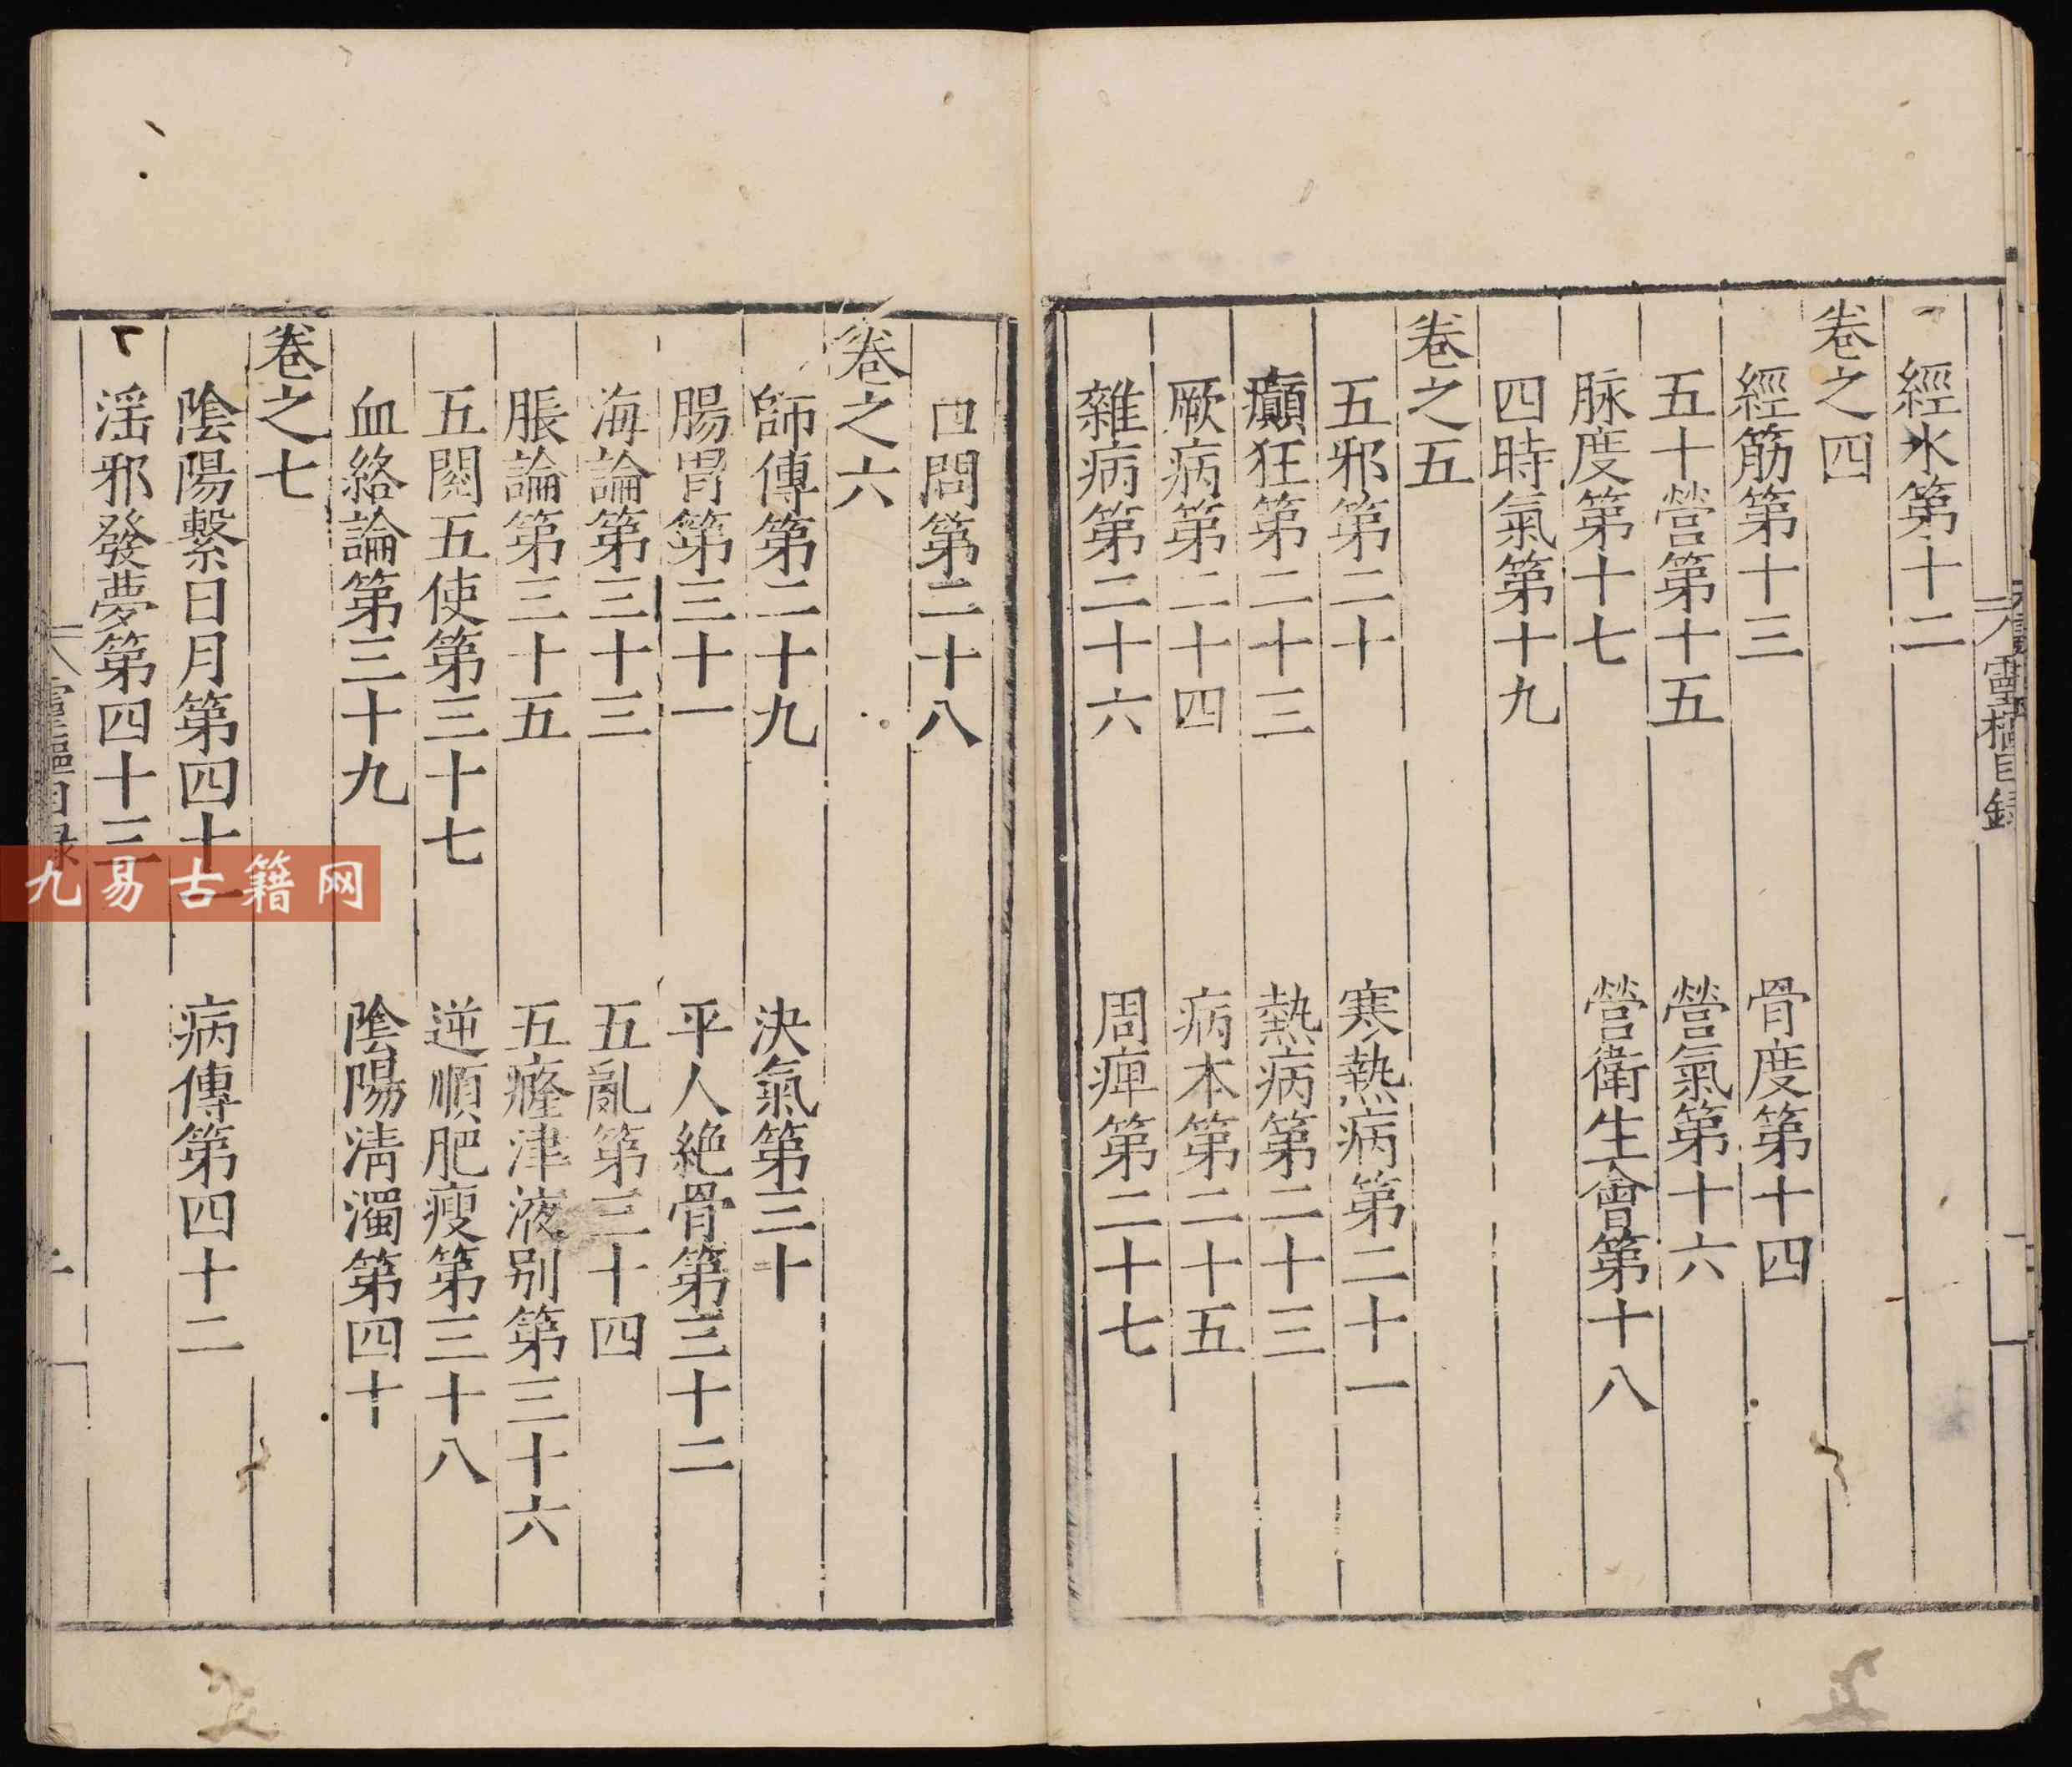 靈樞目錄
經水第十二
卷之四
經筋第十三　骨度第十四
五十營第十五　營氣第十六
脉度第十七　營衛生會第十八
四時氣第十九
卷之五
五邪第二十　寒熱病第二十一
癲狂第二十三　熱病第二十三
厥病第二十四　病本第二十五
雜病第二十六　周痺第二十七
口問第二十八
卷之六
師傳第二十九　決氣第三十
腸胃第三十一　平人絶骨第三十二
海論第三十三　五亂第三十四
脹論第三十五　五癃津液别第三十六
五閱五使第三十七　逆順肥瘦第三十八
血絡論第三十九　陰陽淸濁第四十
卷之七
陰陽繫日月第四十一　病傳第四十二
淫邪發夢第四十三
靈樞目录
九易古籍网